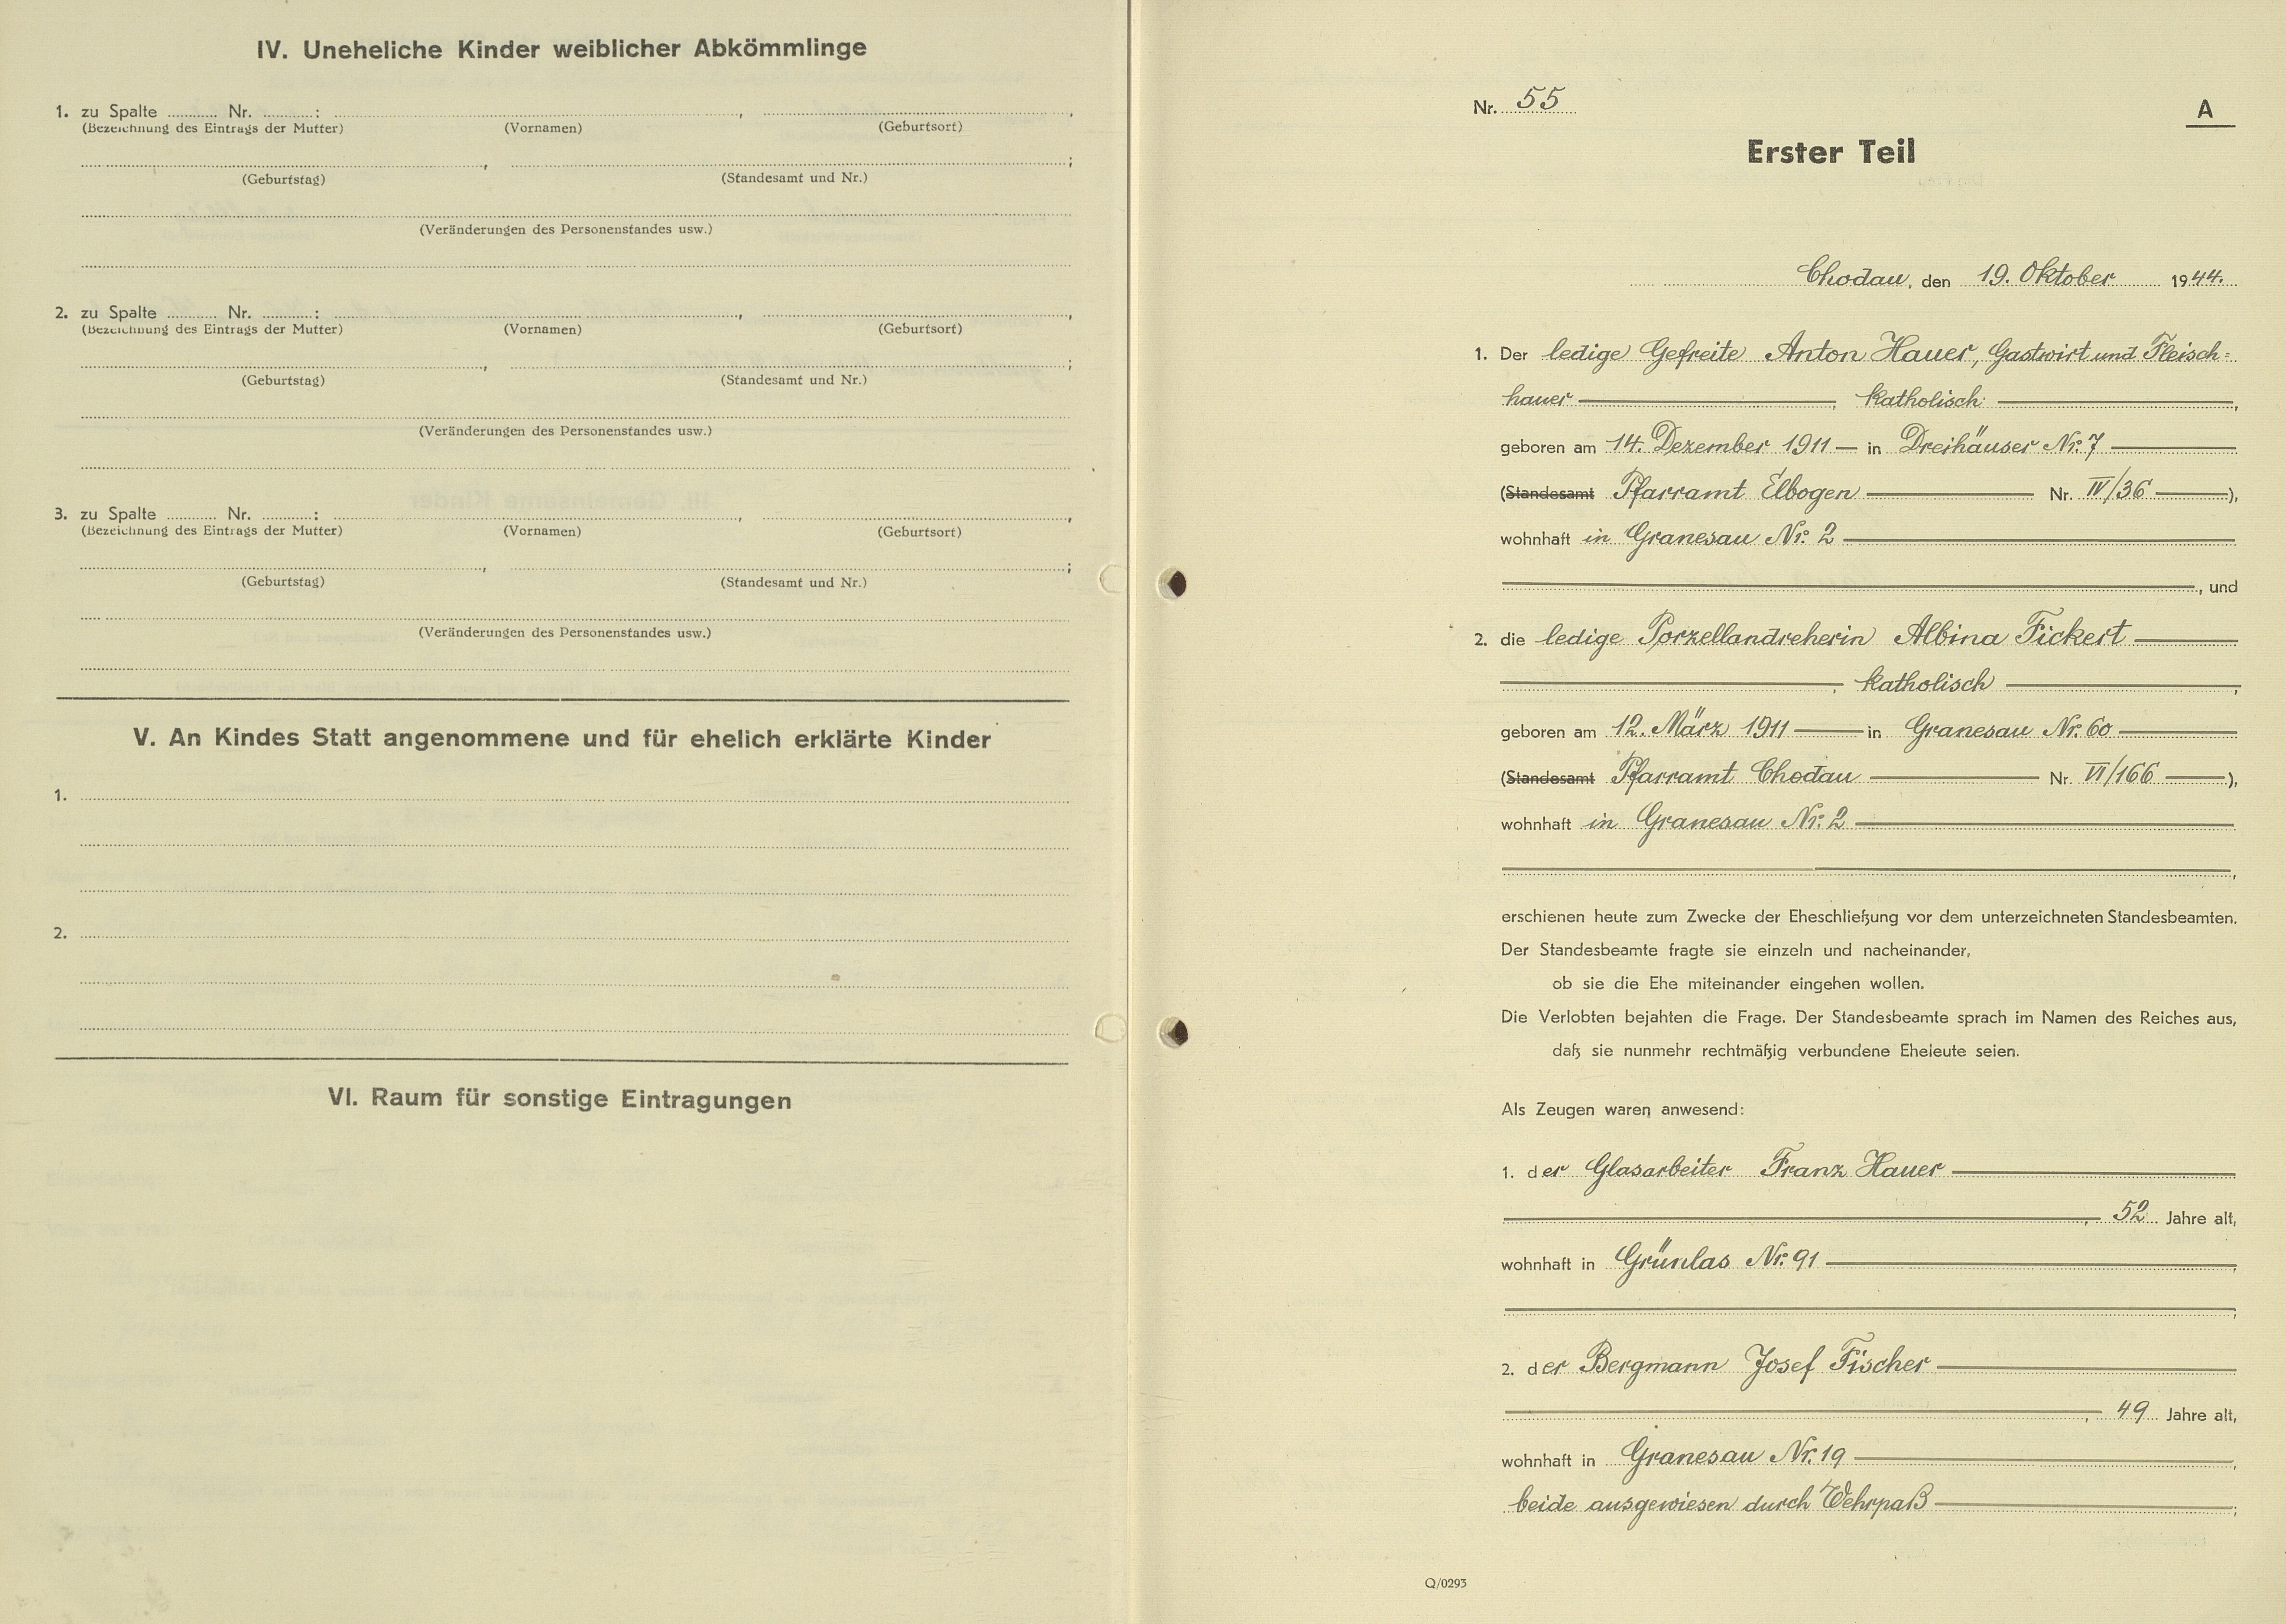 IV. Uneheliche Kinder weiblicher Abkömmlinge
1. zu Spalte .......... Nr. ..........: , ,
(Bezeichnung des Eintrags der Mutter) (Vornamen) (Geburtsort)
, ;
(Geburtstag) (Standesamt und Nr.)
(Veränderungen des Personenstandes usw.)
2. zu Spalte .......... Nr. ..........: , ,
(Bezeichnung des Eintrags der Mutter) (Vornamen) (Geburtsort)
, ;
(Geburtstag) (Standesamt und Nr.)
(Veränderungen des Personenstandes usw.)
3. zu Spalte .......... Nr. ..........: , ,
(Bezeichnung des Eintrags der Mutter) (Vornamen) (Geburtsort)
, ;
(Geburtstag) (Standesamt und Nr.)
(Veränderungen des Personenstandes usw.)
V. An Kindes Statt angenommene und für ehelich erklärte Kinder
1.
2.
VI. Raum für sonstige Eintragungen
Nr. 55 A
Erster Teil
Chodau, den 19. Oktober 1944.
1. Der ledige Gefreite Anton Hauer, Gastwirt und Fleisch=
hauer, katholisch,
geboren am 14. Dezember 1911 — in Dreihäuser Nr. 7
(Standesamt Pfarramt Elbogen Nr. IV/36),
wohnhaft in Granesau Nr. 2
, und
2. die ledige Porzellandreherin Albina Fickert
, katholisch,
geboren am 12. März 1911 — in Granesau Nr. 60
(Standesamt Pfarramt Chodau Nr. VI/166),
wohnhaft in Granesau Nr. 2
,
erschienen heute zum Zwecke der Eheschließung vor dem unterzeichneten Standesbeamten.
Der Standesbeamte fragte sie einzeln und nacheinander,
ob sie die Ehe miteinander eingehen wollen.
Die Verlobten bejahten die Frage. Der Standesbeamte sprach im Namen des Reiches aus,
daß sie nunmehr rechtmäßig verbundene Eheleute seien.
Als Zeugen waren anwesend:
1. der Glasarbeiter Franz Hauer
, 52 Jahre alt,
wohnhaft in Grünlas Nr. 91
,
2. der Bergmann Josef Fischer
, 49 Jahre alt,
wohnhaft in Granesau Nr. 19,
beide ausgewiesen durch Wehrpaß;
Q/0293